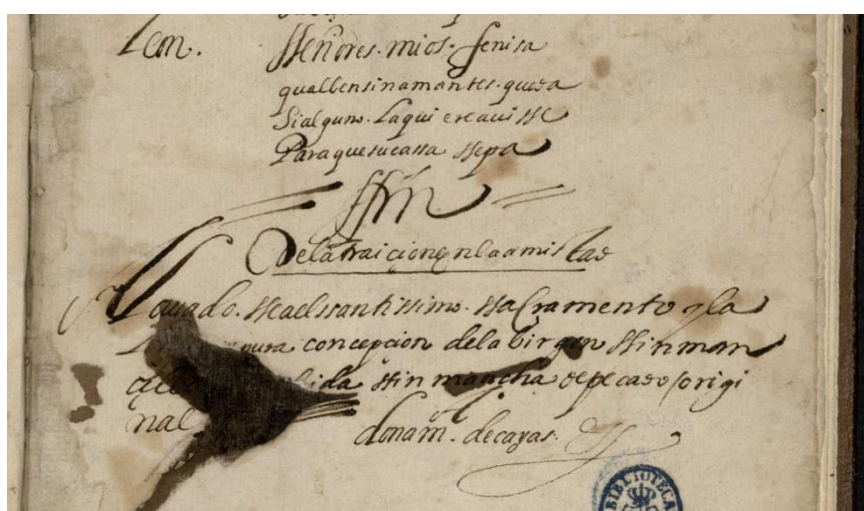 Leon. Sseñores. mios. fenisa
qual ben sin amantes. queda
Si alguno. la quiere avisse
Para que su cassa ssepa
ffin
De la traicion en la amistad
Loado. ssea el ssantissimo. ssacramento y la
pura concepcion de la birgen ssin man
ssin mancha de pecado origi
nal
dona m.ª de cayas.
BIBLIOTECA